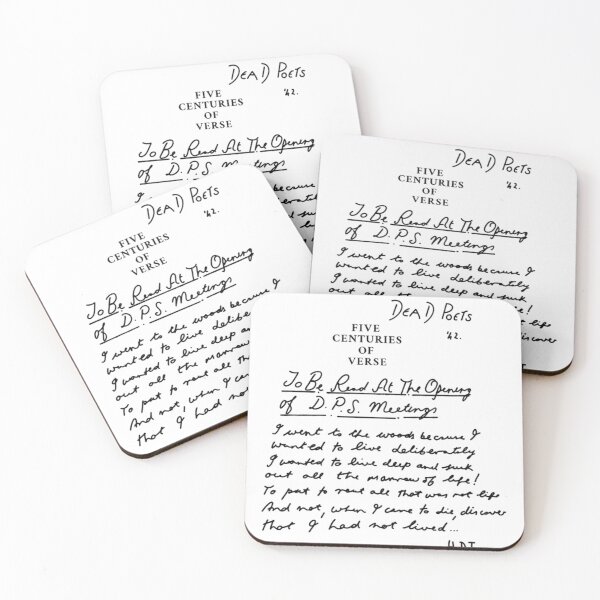 DEAD POETS
FIVE '42.
CENTURIES
OF
VERSE
To Be Read At The Opening
of D.P.S. Meetings
the woods because
deliberately
DEAD POETS
FIVE '42.
CENTURIES
OF
VERSE
To Be Read At The Opening
of D.P.S. Meetings
I went to the woods because I
wanted to live deliberately
I wanted to live deep and suck
of life!
not life
discover
DEAD POETS
FIVE '42.
CENTURIES
OF
VERSE
To Be Read At The Opening
of D.P.S. Meetings
I went to the woods because I
wanted to live
I wanted to live deep
out all the marrow
To put to rout all
And not, when I
that I had not
DEAD POETS
FIVE '42.
CENTURIES
OF
VERSE
To Be Read At The Opening
of D.P.S. Meetings
I went to the woods because I
wanted to live deliberately
I wanted to live deep and suck
out all the marrow of life!
To put to rout all that was not life
And not, when I came to die, discover
that I had not lived...